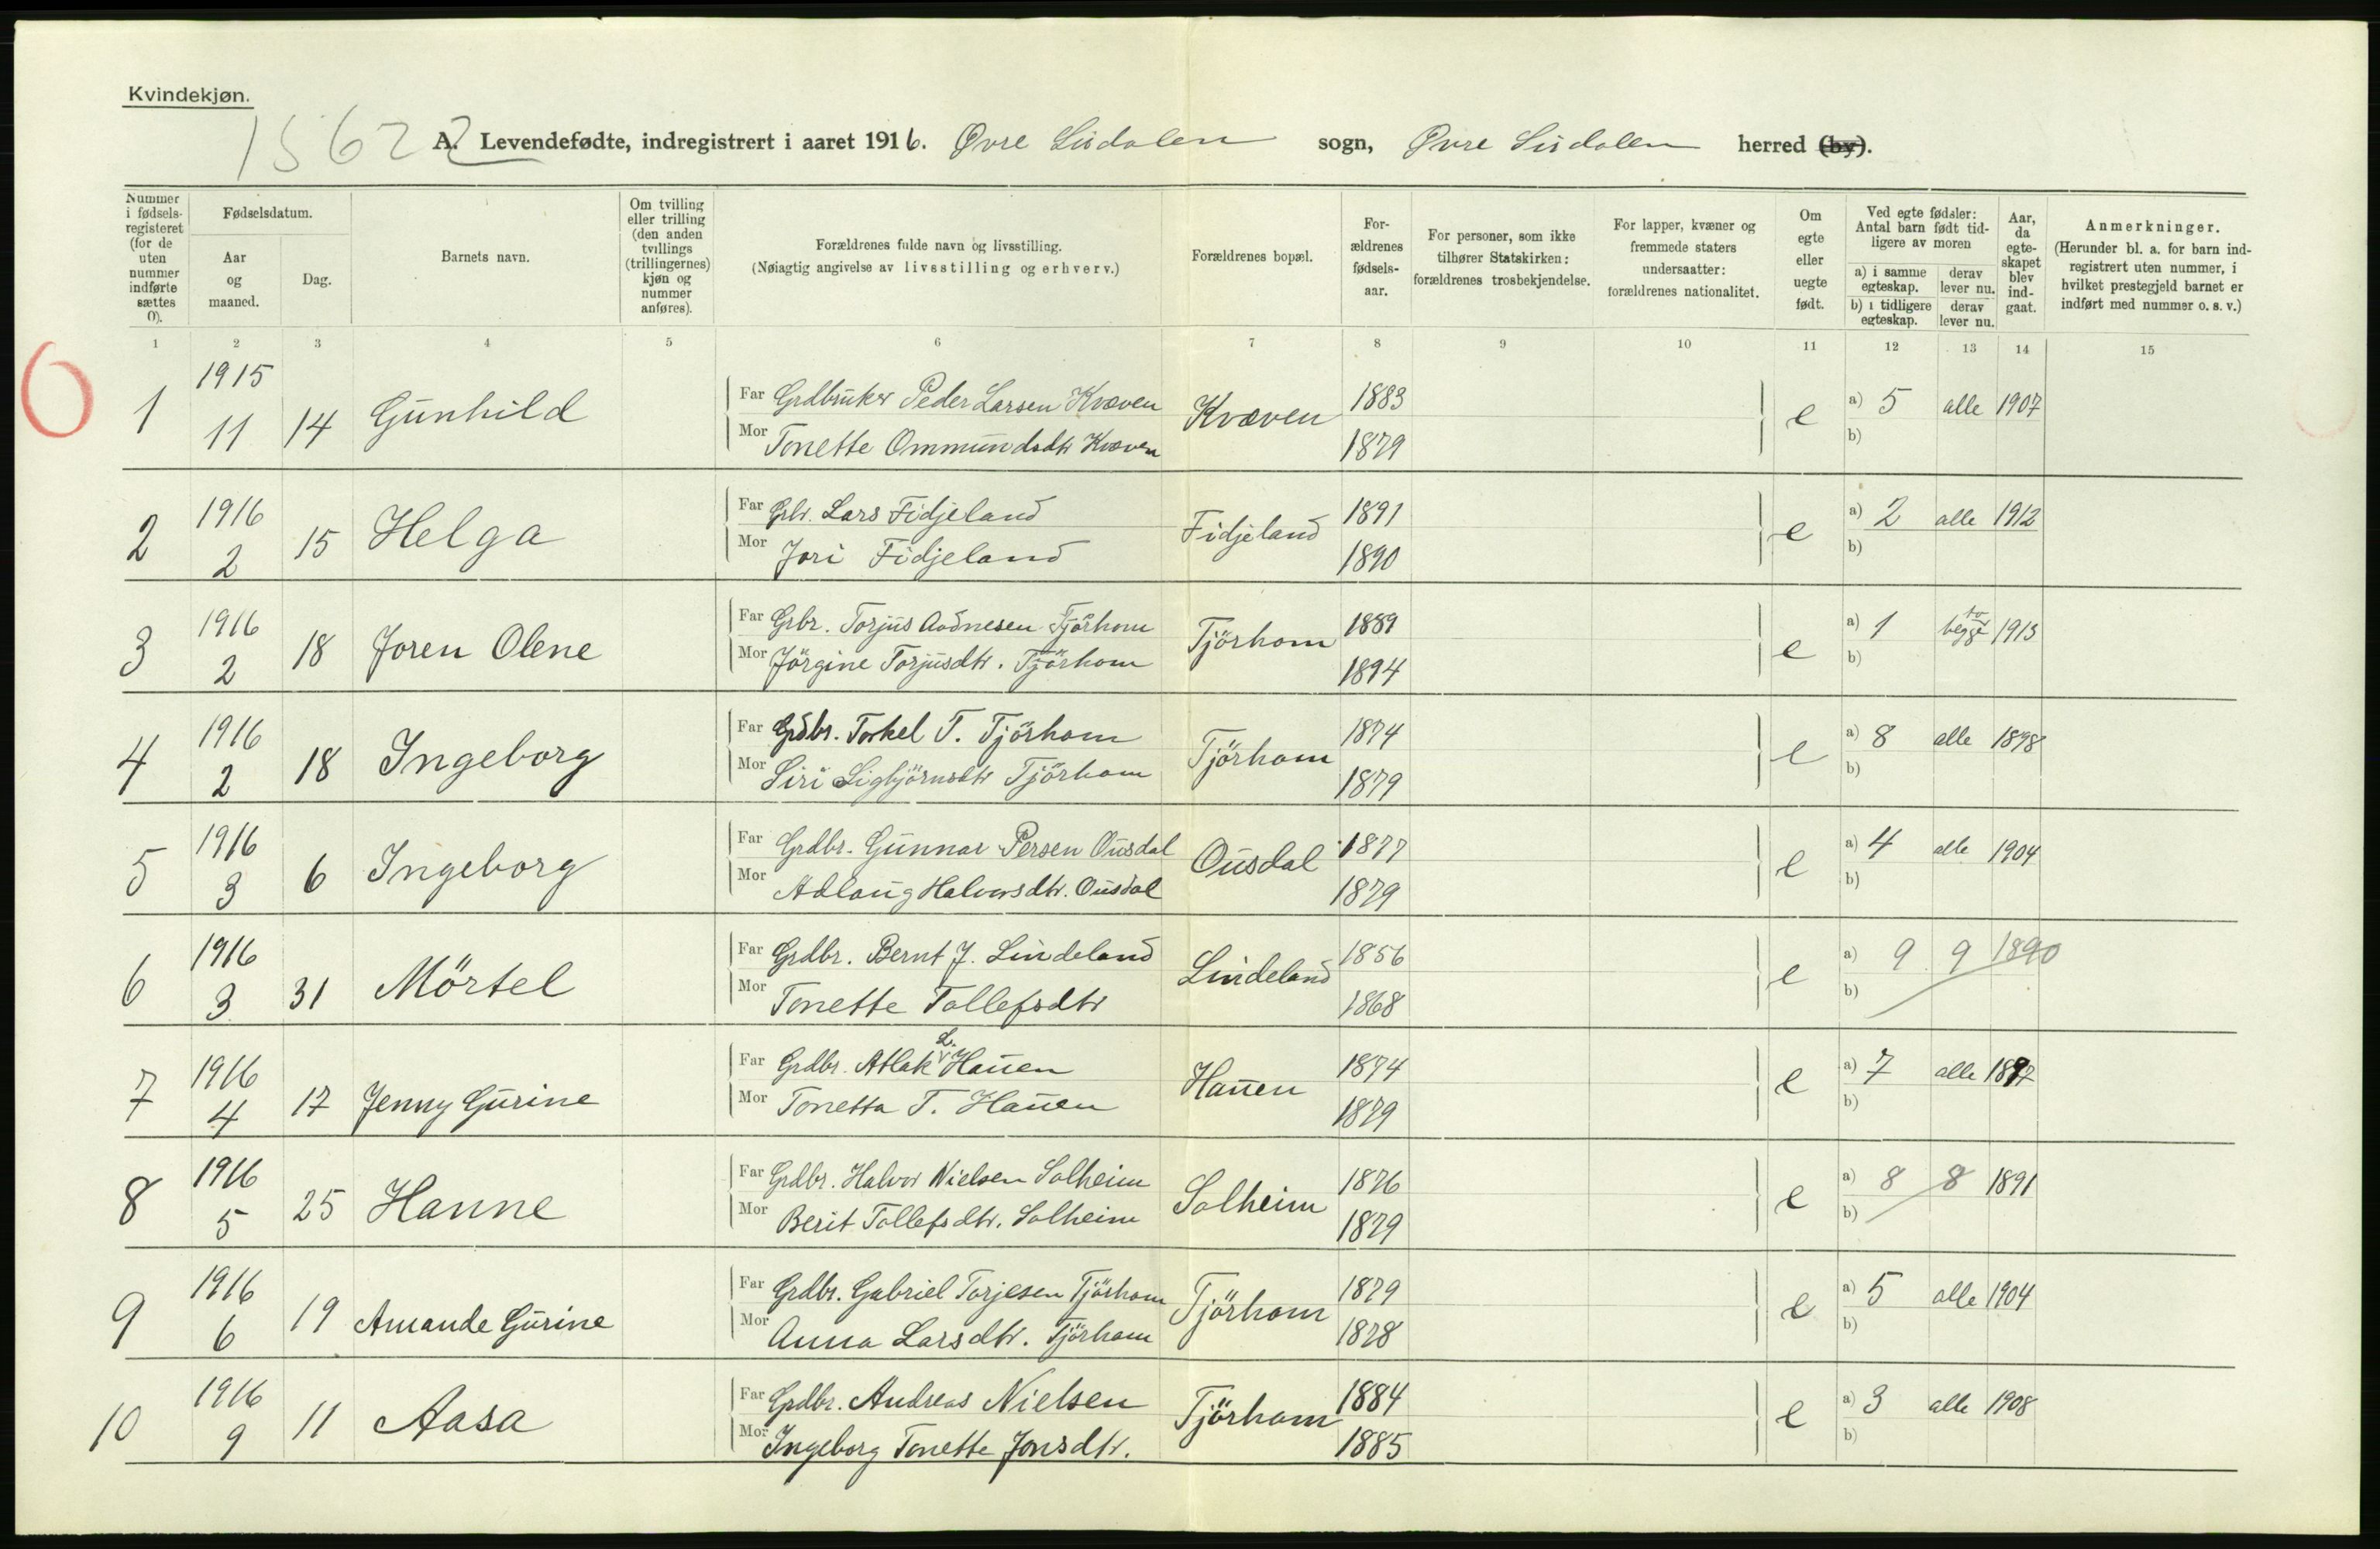 Kvindekjøn.
15622
A. Levendefødte, indregistrert i aaret 1916. Øvre Sirdalen sogn, Øvre Sirdalen herred (by).
Nummer i fødselsregisteret (for de uten nummer indførte sættes 0).
Fødselsdatum.
Aar og maaned.
Dag.
Barnets navn.
Om tvilling eller trilling (den anden tvillings (trillingernes) kjøn og nummer anføres).
Forældrenes fulde navn og livsstilling.
(Nøiagtig angivelse av livsstilling og erhverv.)
Forældrenes bopæl.
Forældrenes fødselsaar.
For personer, som ikke tilhører Statskirken: forældrenes trosbekjendelse.
For lapper, kvæner og fremmede staters undersaatter: forældrenes nationalitet.
Om egte eller uegte født.
Ved egte fødsler: Antal barn født tidligere av moren
a) i samme egteskap.
derav lever nu.
b) i tidligere egteskap.
derav lever nu.
Aar, da egteskapet blev indgaat.
Anmerkninger.
(Herunder bl. a. for barn indregistrert uten nummer, i hvilket prestegjeld barnet er indført med nummer o. s. v.)
1 2 3 4 5 6 7 8 9 10 11 12 13 14 15
6
1 1915 11 14 Gunhild Far Grdbruker Peder Larsen Kvæven Kvæven 1883 e a) 5 alle 1907
Mor Tonette Ommundsdtr Kvæven 1879 b)
2 1916 2 15 Helga Far Grbr. Lars Fidjeland Fidjeland 1891 e a) 2 alle 1912
Mor Jori Fidjeland 1890 b)
3 1916 2 18 Joren Olene Far Grbr. Torjus Aadnesen Tjörhom Tjörhom 1889 e a) 1 begge 1913
Mor Jörgine Torjusdtr. Tjörhom 1894 b)
4 1916 2 18 Ingeborg Far Grdbr. Torkel T. Tjörhom Tjörhom 1874 e a) 8 alle 1898
Mor Siri Sigbjörnsdtr Tjörhom 1879 b)
5 1916 3 6 Ingeborg Far Grdbr. Gunnar Persen Ousdal Ousdal 1877 e a) 4 alle 1904
Mor Adlaug Halvorsdtr. Ousdal 1879 b)
6 1916 3 31 Mörtel Far Grdbr. Bernt J. Lindeland Lindeland 1856 e a) 9 9 1890
Mor Tonette Tollefsdtr 1868 b)
7 1916 4 17 Jenny Gurine Far Grdbr. Atlak L. Hauen Hauen 1874 e a) 7 alle
Mor Tonetta T. Hauen 1879 b)
8 1916 5 25 Hanne Far Grdbr. Halvor Nielsen Solheim Solheim 1876 e a) 8 8 1891
Mor Berit Tollefsdtr. Solheim 1879 b)
9 1916 6 19 Amande Gurine Far Grdbr. Gabriel Torjesen Tjörhom Tjörhom 1879 e a) 5 alle 1904
Mor Anna Larsdtr. Tjörhom 1878 b)
10 1916 9 11 Aasa Far Grdbr. Andreas Nielsen Tjörhom 1884 e a) 3 alle 1908
Mor Ingeborg Tonette Jonsdtr. 1885 b)